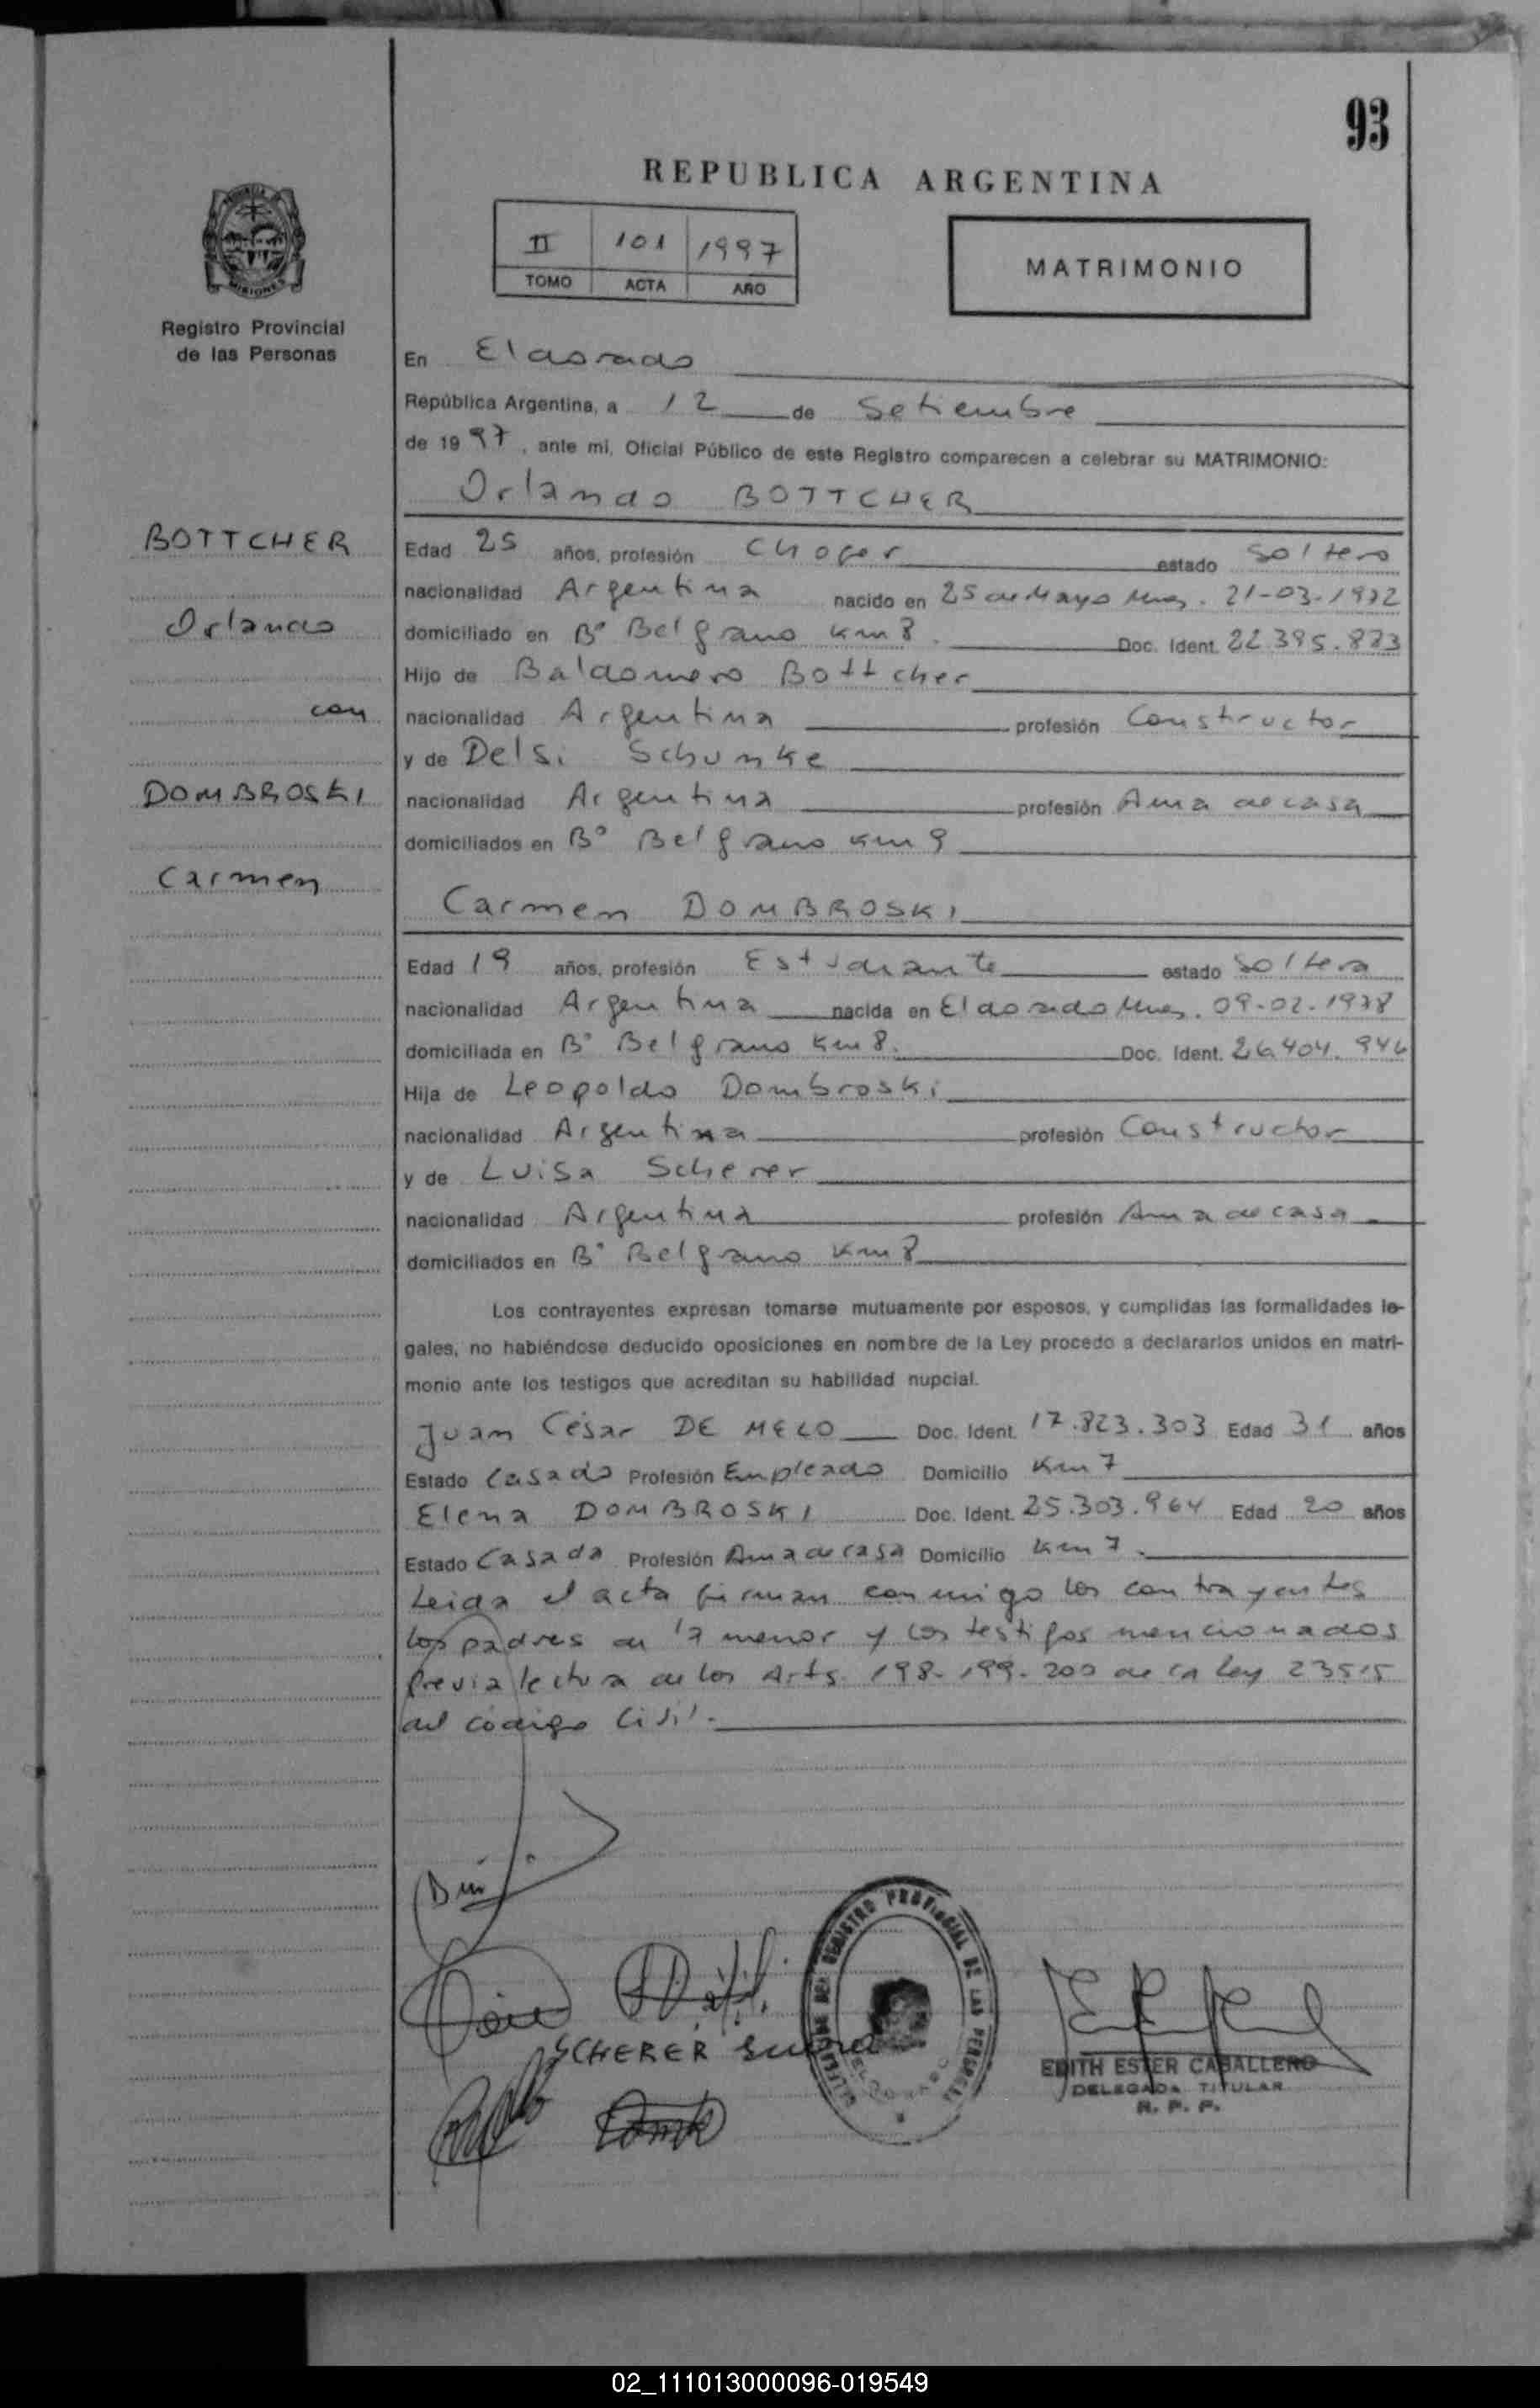 93
REPUBLICA ARGENTINA
II 101 1997
TOMO ACTA AÑO
MATRIMONIO
MISIONES
Registro Provincial
de las Personas
En Eldorado
República Argentina, a 12 de Setiembre
de 1997, ante mi, Oficial Público de este Registro comparecen a celebrar su MATRIMONIO:
Orlando BOTTCHER
BOTTCHER
Orlando
con
DOMBROSKI
Carmen
Edad 25 años, profesión Chofer estado Soltero
nacionalidad Argentina nacido en 25 de Mayo Mnes. 21-03-1972
domiciliado en B° Belgrano Km 8. Doc. Ident. 22.395.873
Hijo de Baldomero Bottcher
nacionalidad Argentina profesión Constructor
y de Delsi Schunke
nacionalidad Argentina profesión Ama de casa
domiciliados en B° Belgrano Km 9
Carmen DOMBROSKI
Edad 19 años, profesión Estudiante estado Soltera
nacionalidad Argentina nacida en Eldorado Mnes. 09-02-1978
domiciliada en B° Belgrano Km 8. Doc. Ident. 26.404.946
Hija de Leopoldo Dombroski
nacionalidad Argentina profesión Constructor
y de Luisa Scherer
nacionalidad Argentina profesión Ama de casa
domiciliados en B° Belgrano Km 8
Los contrayentes expresan tomarse mutuamente por esposos, y cumplidas las formalidades le-
gales, no habiéndose deducido oposiciones en nombre de la Ley procedo a declararlos unidos en matri-
monio ante los testigos que acreditan su habilidad nupcial.
Juan César DE MELO Doc. Ident. 17.823.303 Edad 31 años
Estado Casado Profesión Empleado Domicilio Km 7
Elena DOMBROSKI Doc. Ident. 25.303.964 Edad 20 años
Estado Casada Profesión Ama de casa Domicilio Km 7.
Leida el acta firman conmigo los contrayentes
los padres de la menor y los testigos mencionados
previa lectura de los Arts. 198-199-200 de la Ley 23515
del código Civil.
SCHERER
REGISTRO PROVINCIAL DE LAS PERSONAS
ELDORADO
EDITH ESTER CABALLERO
DELEGADA TITULAR
R. P. P.
02_111013000096-019549